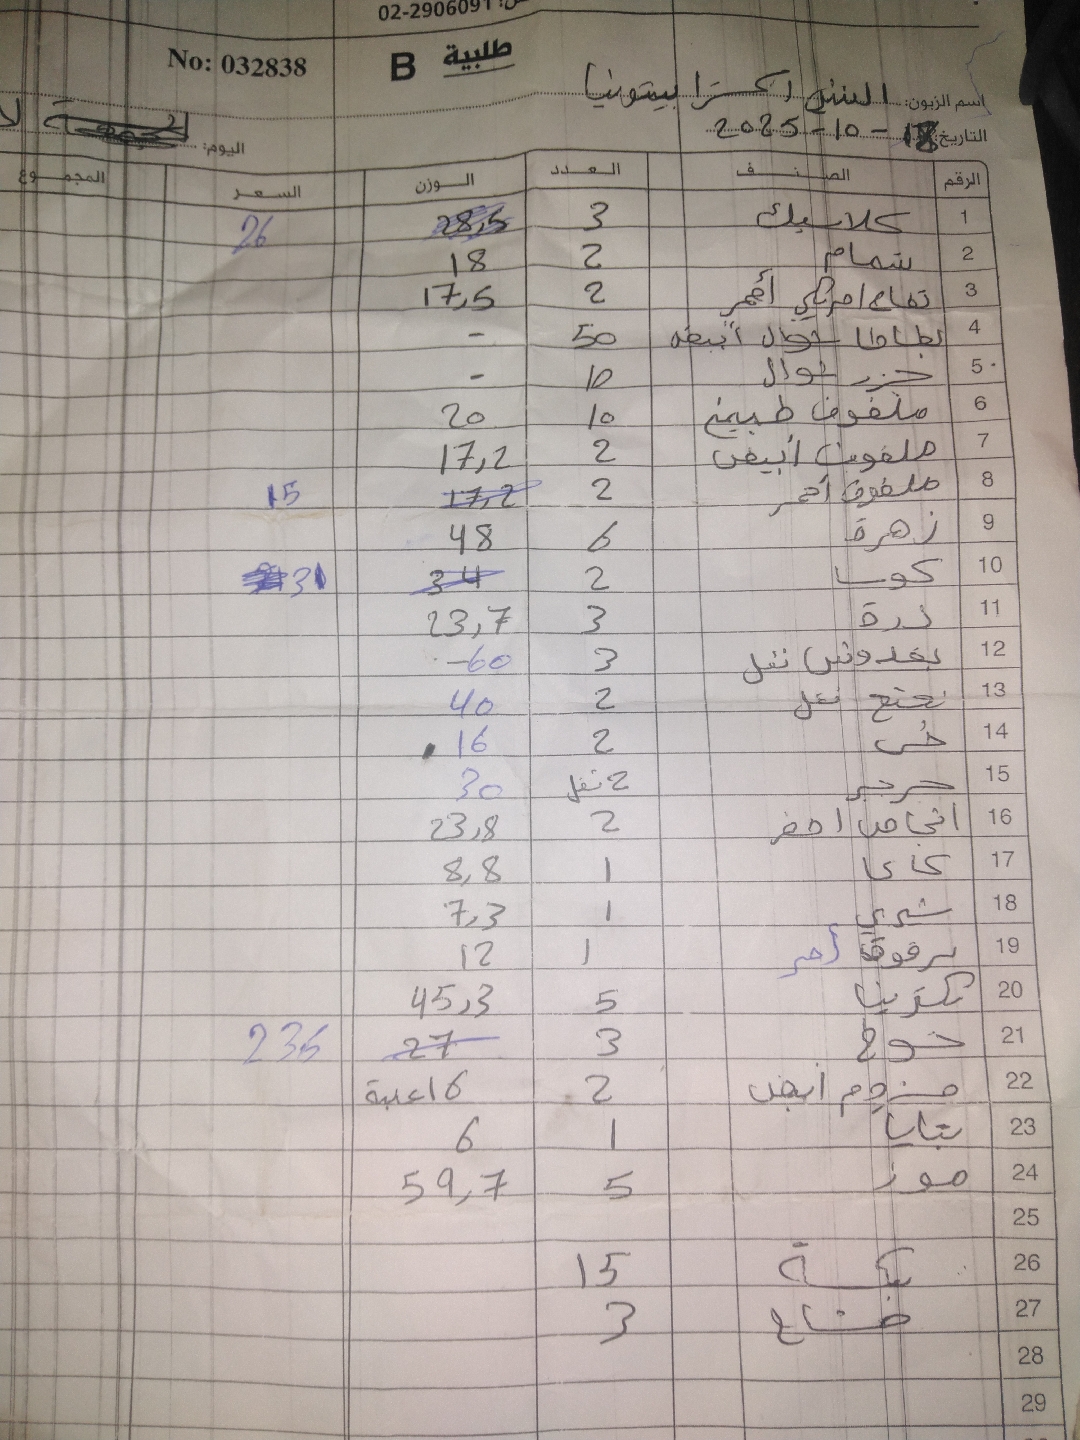 02-2906091
No: 032838 B طلبية
اسم الزبون: السني اكسترا بيتونيا
التاريخ: 18-10-2025
اليوم: الجمعة
الرقم الصنف العدد الوزن السعر المجموع
1 كلاسيك 3 28,5 26
2 شمام 2 18
3 تفاح امريكي أحمر 2 17,5
4 بطاطا شوال أبيض 50 -
5 جزر شوال 10 -
6 ملفوف طبيخ 10 20
7 ملفوف أبيض 2 17,2
8 ملفوف أحمر 2 17,2 15
9 زهرة 6 48
10 كوسا 2 34 31
11 ذرة 3 23,7
12 بقدونس نفل 3 60
13 نعنع نفل 2 40
14 خس 2 16
15 جرجير 2 نفل 30
16 انجاص اخضر 2 23,8
17 كاكا 1 8,8
18 شيري 1 7,3
19 برقوق أحمر 1 12
20 نكترينا 5 45,3
21 خوخ 3 27 235
22 مشروم أبيض 2 16 علبة
23 بتايا 1 6
24 موز 5 59,7
25
26 بكسة 15
27 3
28
29